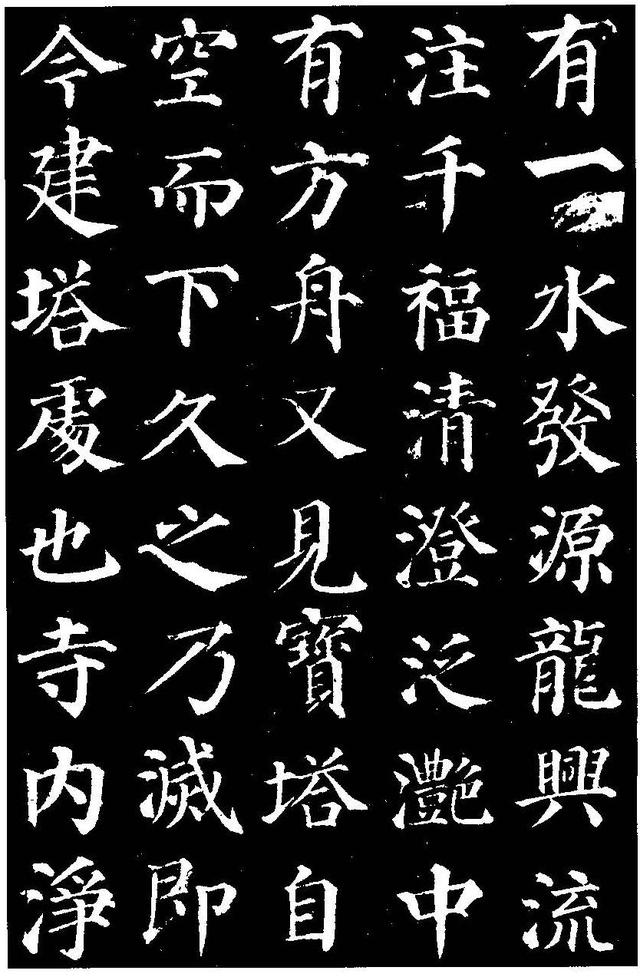 有一水發源龍興流
注千福清澄泛灔中
有方舟又見寶塔自
空而下久之乃滅即
今建塔處也寺內淨